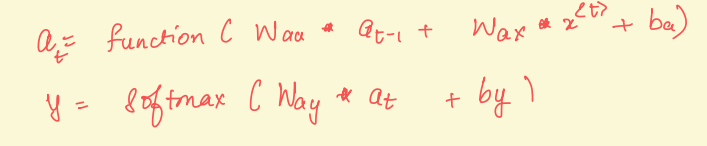 a_t = function ( Waa * a_t-1 + Wax * x^<t> + ba)
y = softmax ( Way * at + by )